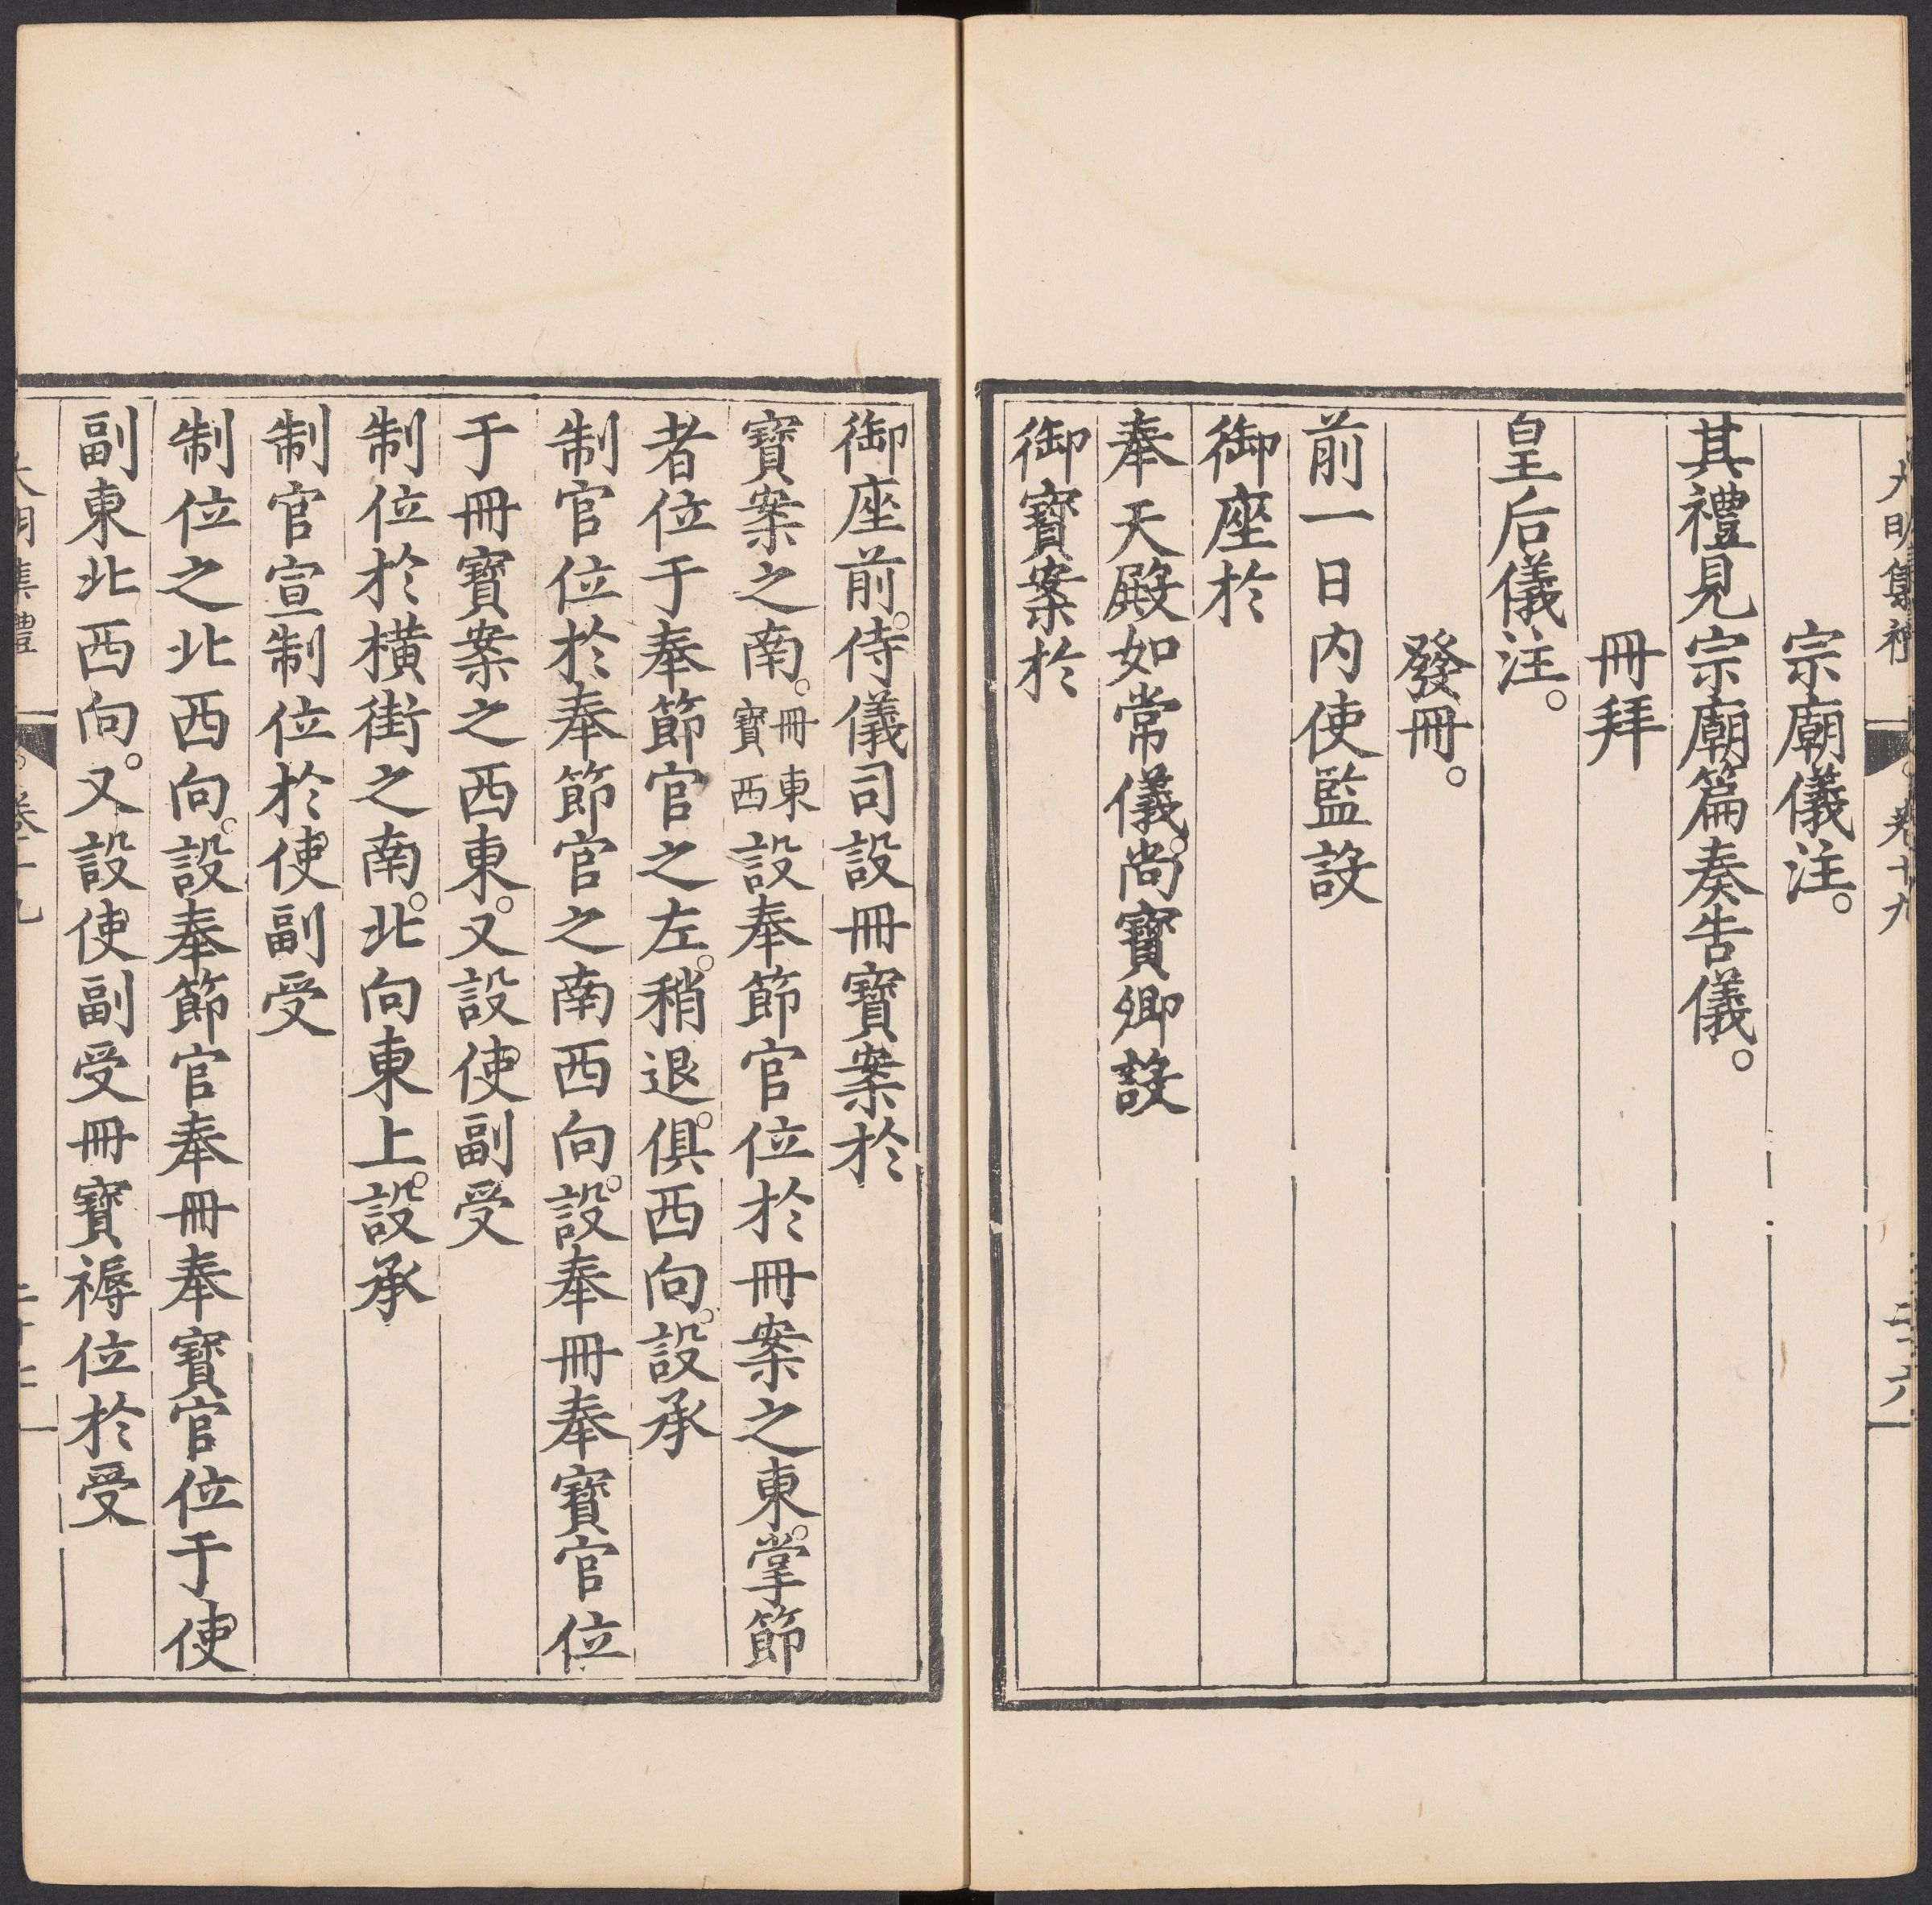 大明集禮 卷十九 二十六
宗廟儀注。
其禮見宗廟篇奏告儀。
冊拜
皇后儀注。
發冊。
前一日内使監設
御座於
奉天殿如常儀。尚寶卿設
御寶案於
御座前。侍儀司設冊寶案於
寶案之南。冊東寶西設奉節官位於冊案之東。掌節
者位于奉節官之左。稍退。俱西向。設承
制官位於奉節官之南西向。設奉冊奉寶官位
于冊寶案之西東。又設使副受
制位於橫街之南。北向東上。設承
制官宣制位於使副受
制位之北西向。設奉節官奉冊奉寶官位于使
副東北西向。又設使副受冊寶褥位於受
大明集禮 卷十九